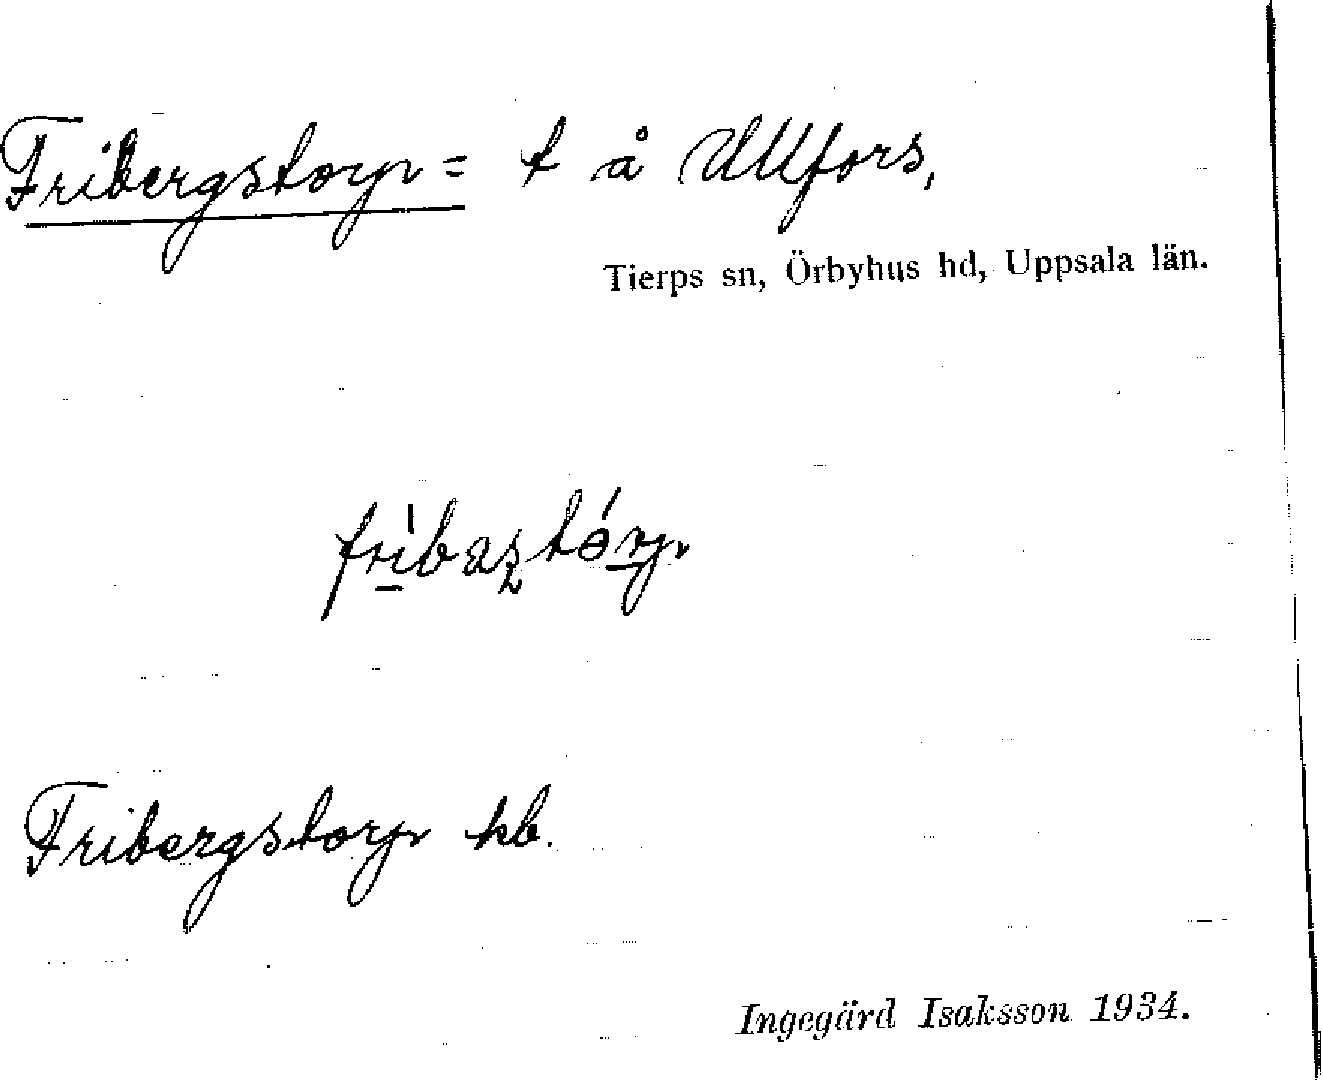 Fribergstorp = t å Ullfors,
Tierps sn, Örbyhus hd, Uppsala län.
Fribergstorp kb.
Ingegärd Isaksson 1934.